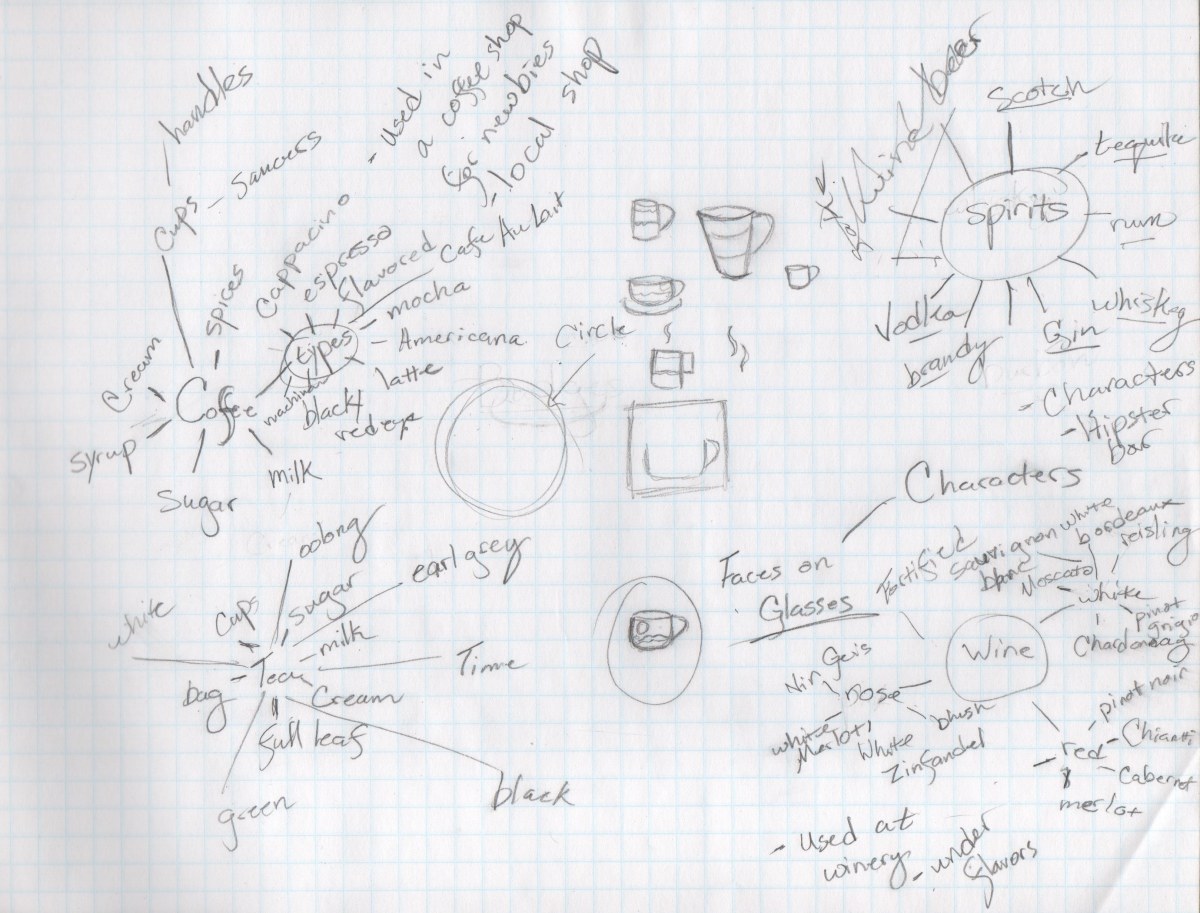 handles
Cups - Saucers
spices
Cream
syrup
Sugar
milk
Coffee
types
Cappacino
espresso
flavored
Cafe Au Lait
mocha
Americana
latte
black/
redeye
- Used in
a coffee shop
for newbies
- local
shop
Circle
spirits
Scotch
tequila
rum
whiskey
Gin
brandy
Vodka
- Characters
- Hipster
bar
Characters
Faces on
Glasses
Tea
oolong
sugar
earl grey
milk
Time
Cream
black
full leaf
green
bag
white
cups
Wine
Fortified
white
Sauvignon
blanc
Moscato
white
bordeaux
reisling
pinot
grigio
Chardonnay
red
pinot noir
Chianti
Cabernet
merlot
rose
Nir Geis
white
Merlot,
White
Zinfandel
blush
- Used at
winery
- under
flavors